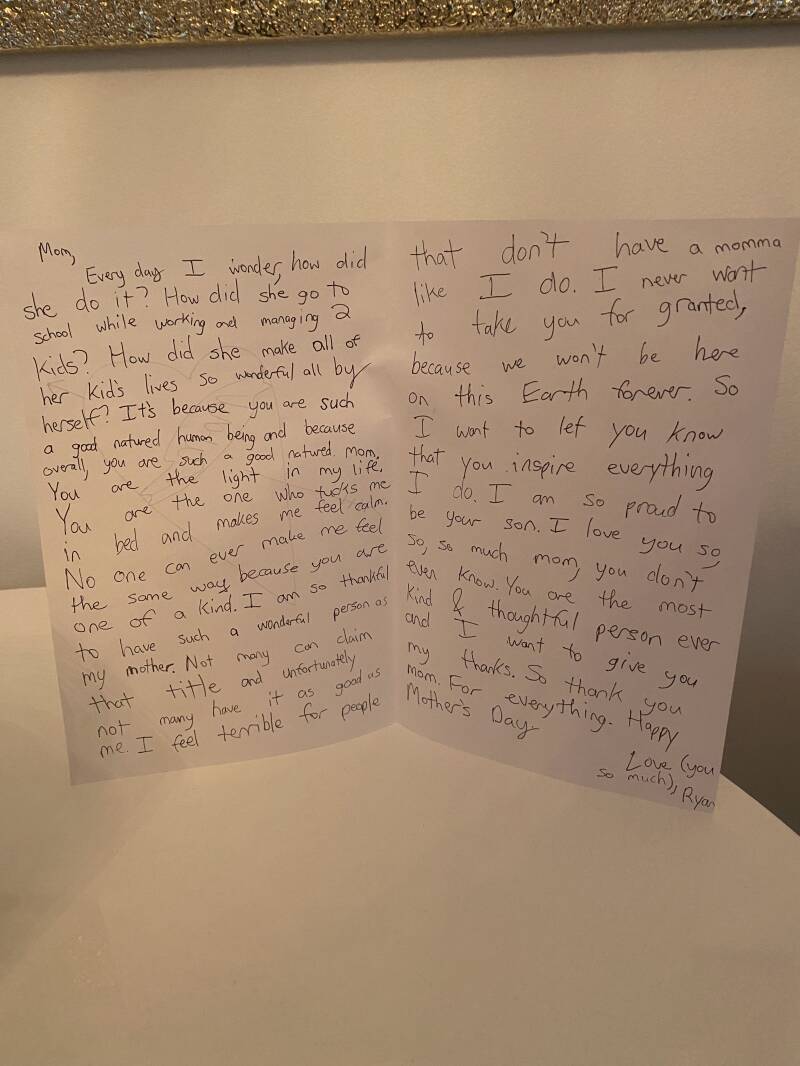 Mom,
Every day I wonder, how did
she do it? How did she go to
school while working and managing 2
kids? How did she make all of
her kid's lives so wonderful all by
herself? It's because you are such
a good natured human being and because
overall, you are such a good natured mom.
You are the light in my life.
You are the one who tucks me
in bed and makes me feel calm.
No one can ever make me feel
the same way because you are
one of a kind. I am so thankful
to have such a wonderful person as
my mother. Not many can claim
that title and unfortunately
not many have it as good as
me. I feel terrible for people
that don't have a momma
like I do. I never want
to take you for granted,
because we won't be here
on this Earth forever. So
I want to let you know
that you inspire everything
I do. I am so proud to
be your son. I love you so,
so, so much mom, you don't
even know. You are the most
kind & thoughtful person ever
and I want to give you
my thanks. So thank you
mom. For everything. Happy
Mother's Day
Love (you
so much),
Ryan